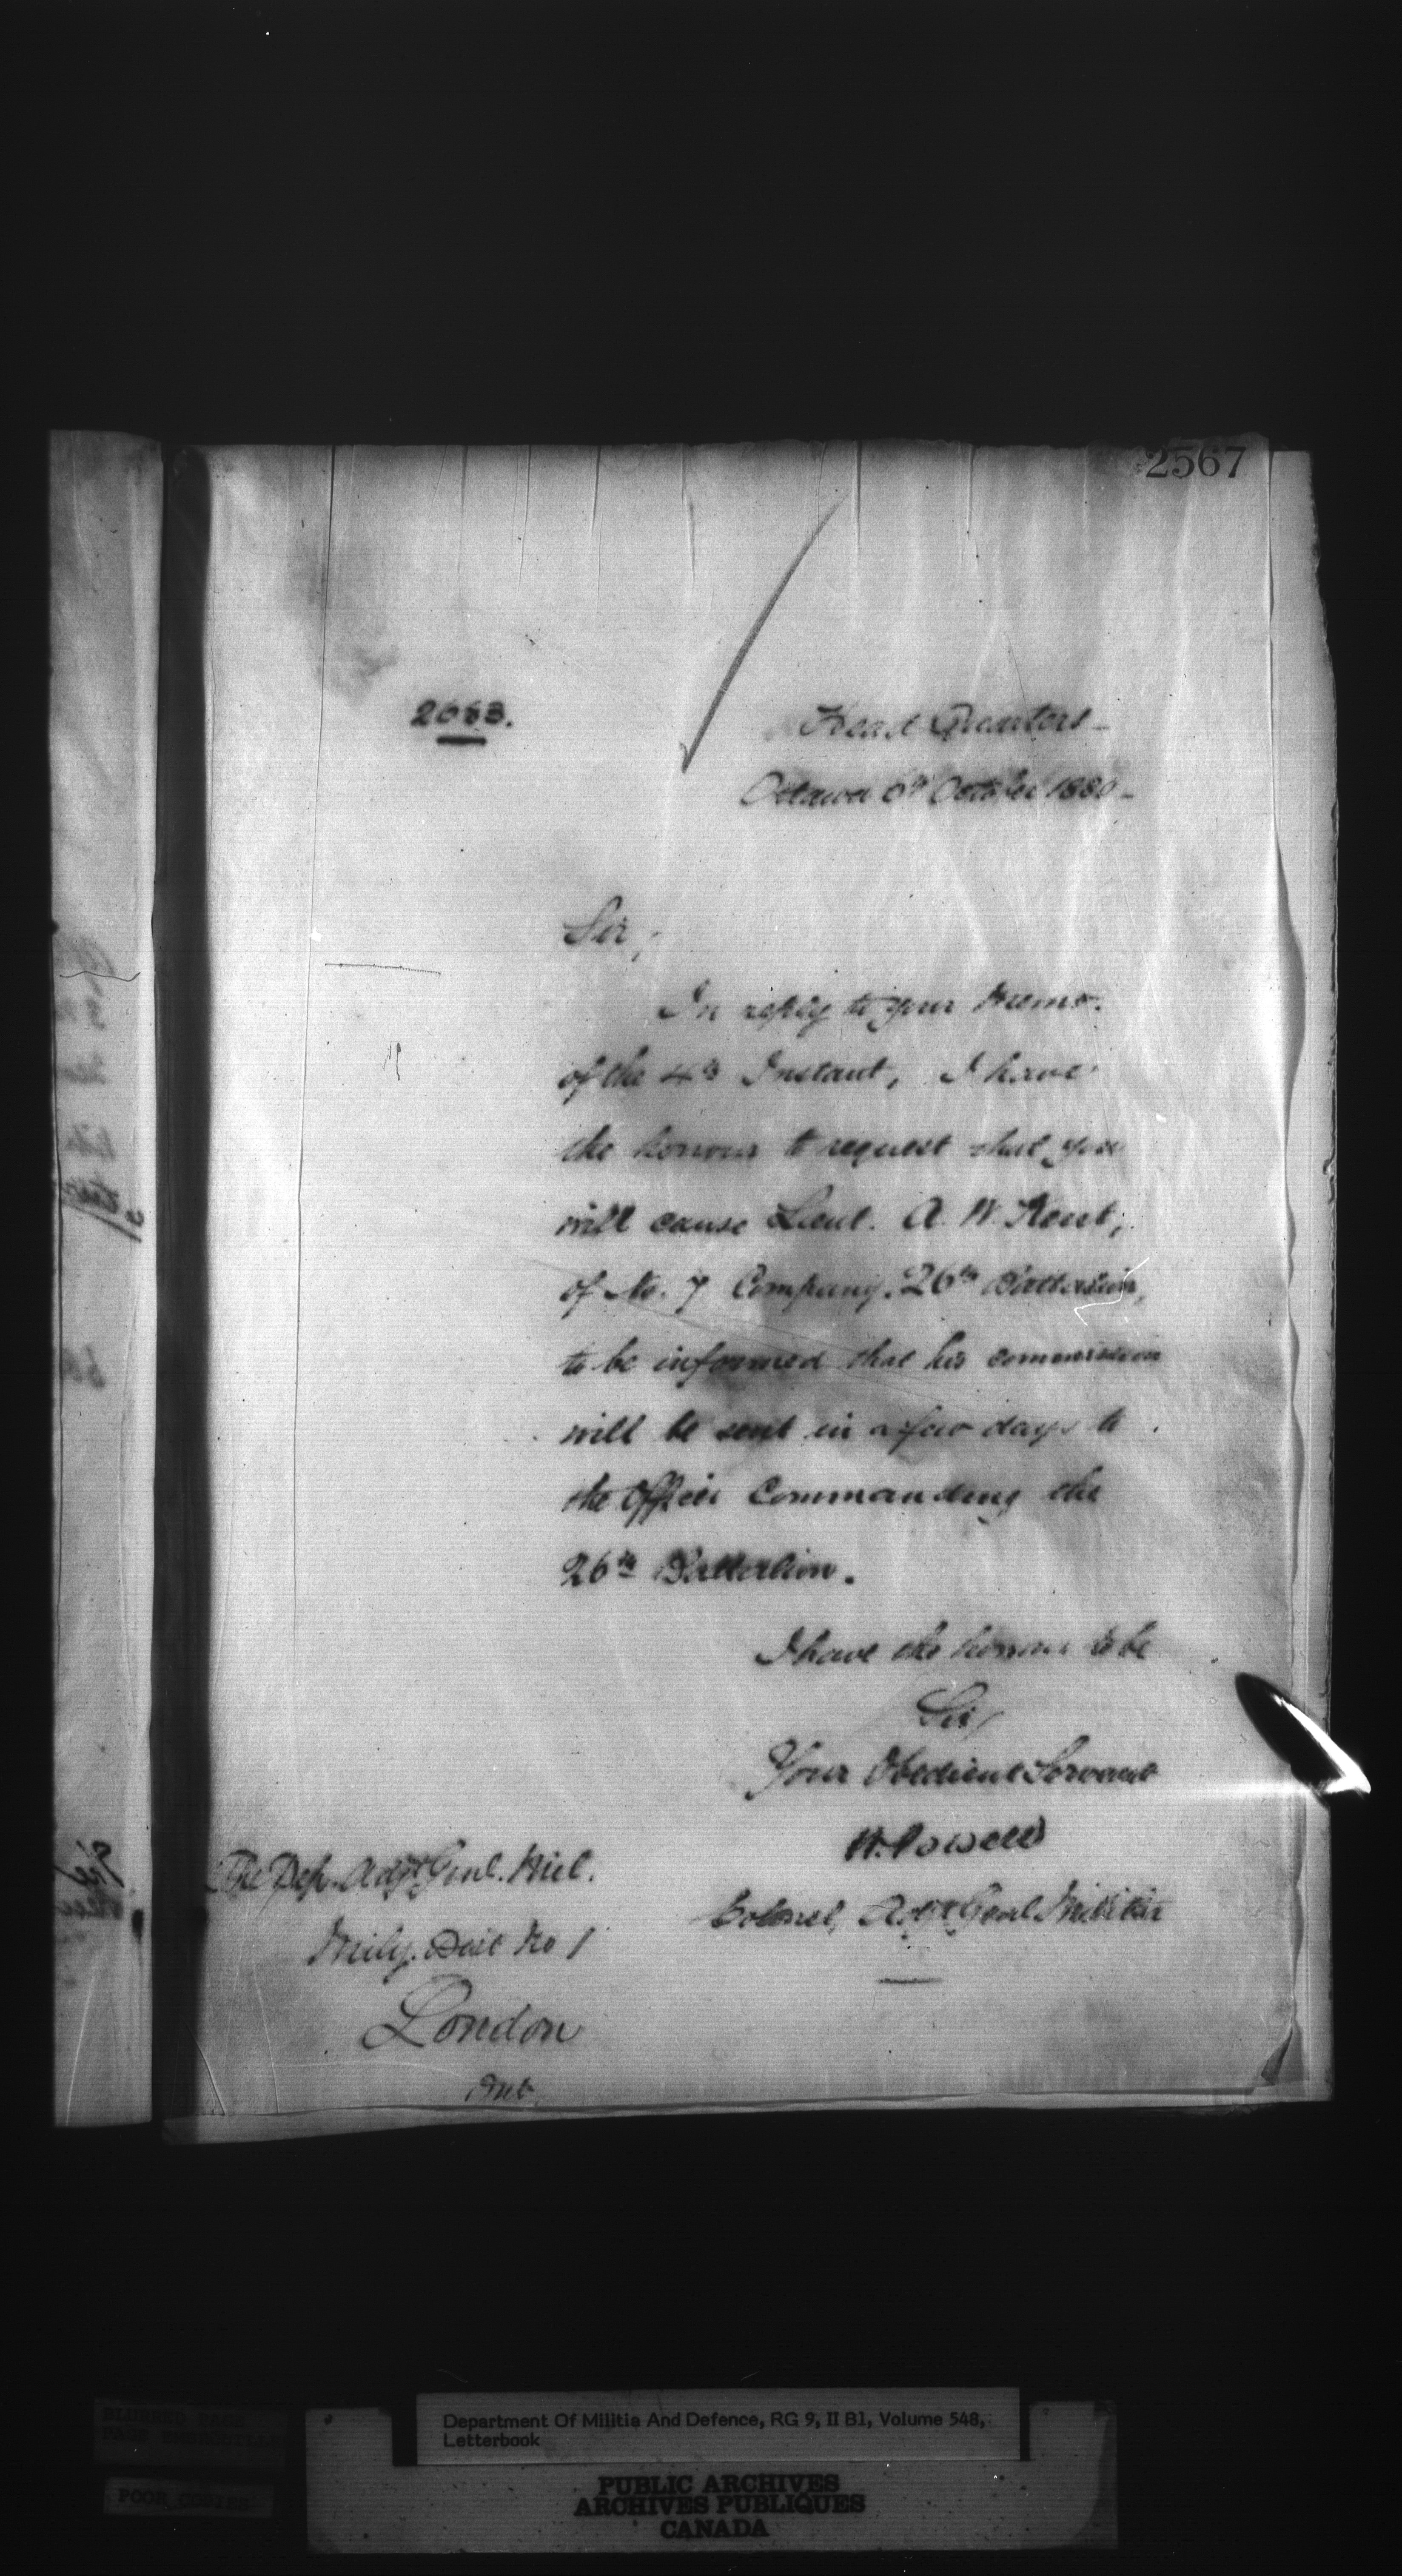 2567
2083.
Head Quarters
Ottawa 6th October 1880
Sir,
In reply to your memo.
of the 4th Instant, I have
the honour to request that you
will cause Lieut. A. W. Kent,
of No. 7 Company. 26th Battalion,
to be informed that his commission
will be sent in a few days to
the Officer Commanding the
26th Battalion.
I have the honour to be
Sir,
Your Obedient Servant
W. Powell
Colonel, Adjt Genl Militia
The Dep. Adjt Genl. Mil.
Mily. Dist No 1
London
Ont.
Department Of Militia And Defence, RG 9, II B1, Volume 548,
Letterbook
BLURRED PAGE
POOR COPIES
PUBLIC ARCHIVES
ARCHIVES PUBLIQUES
CANADA